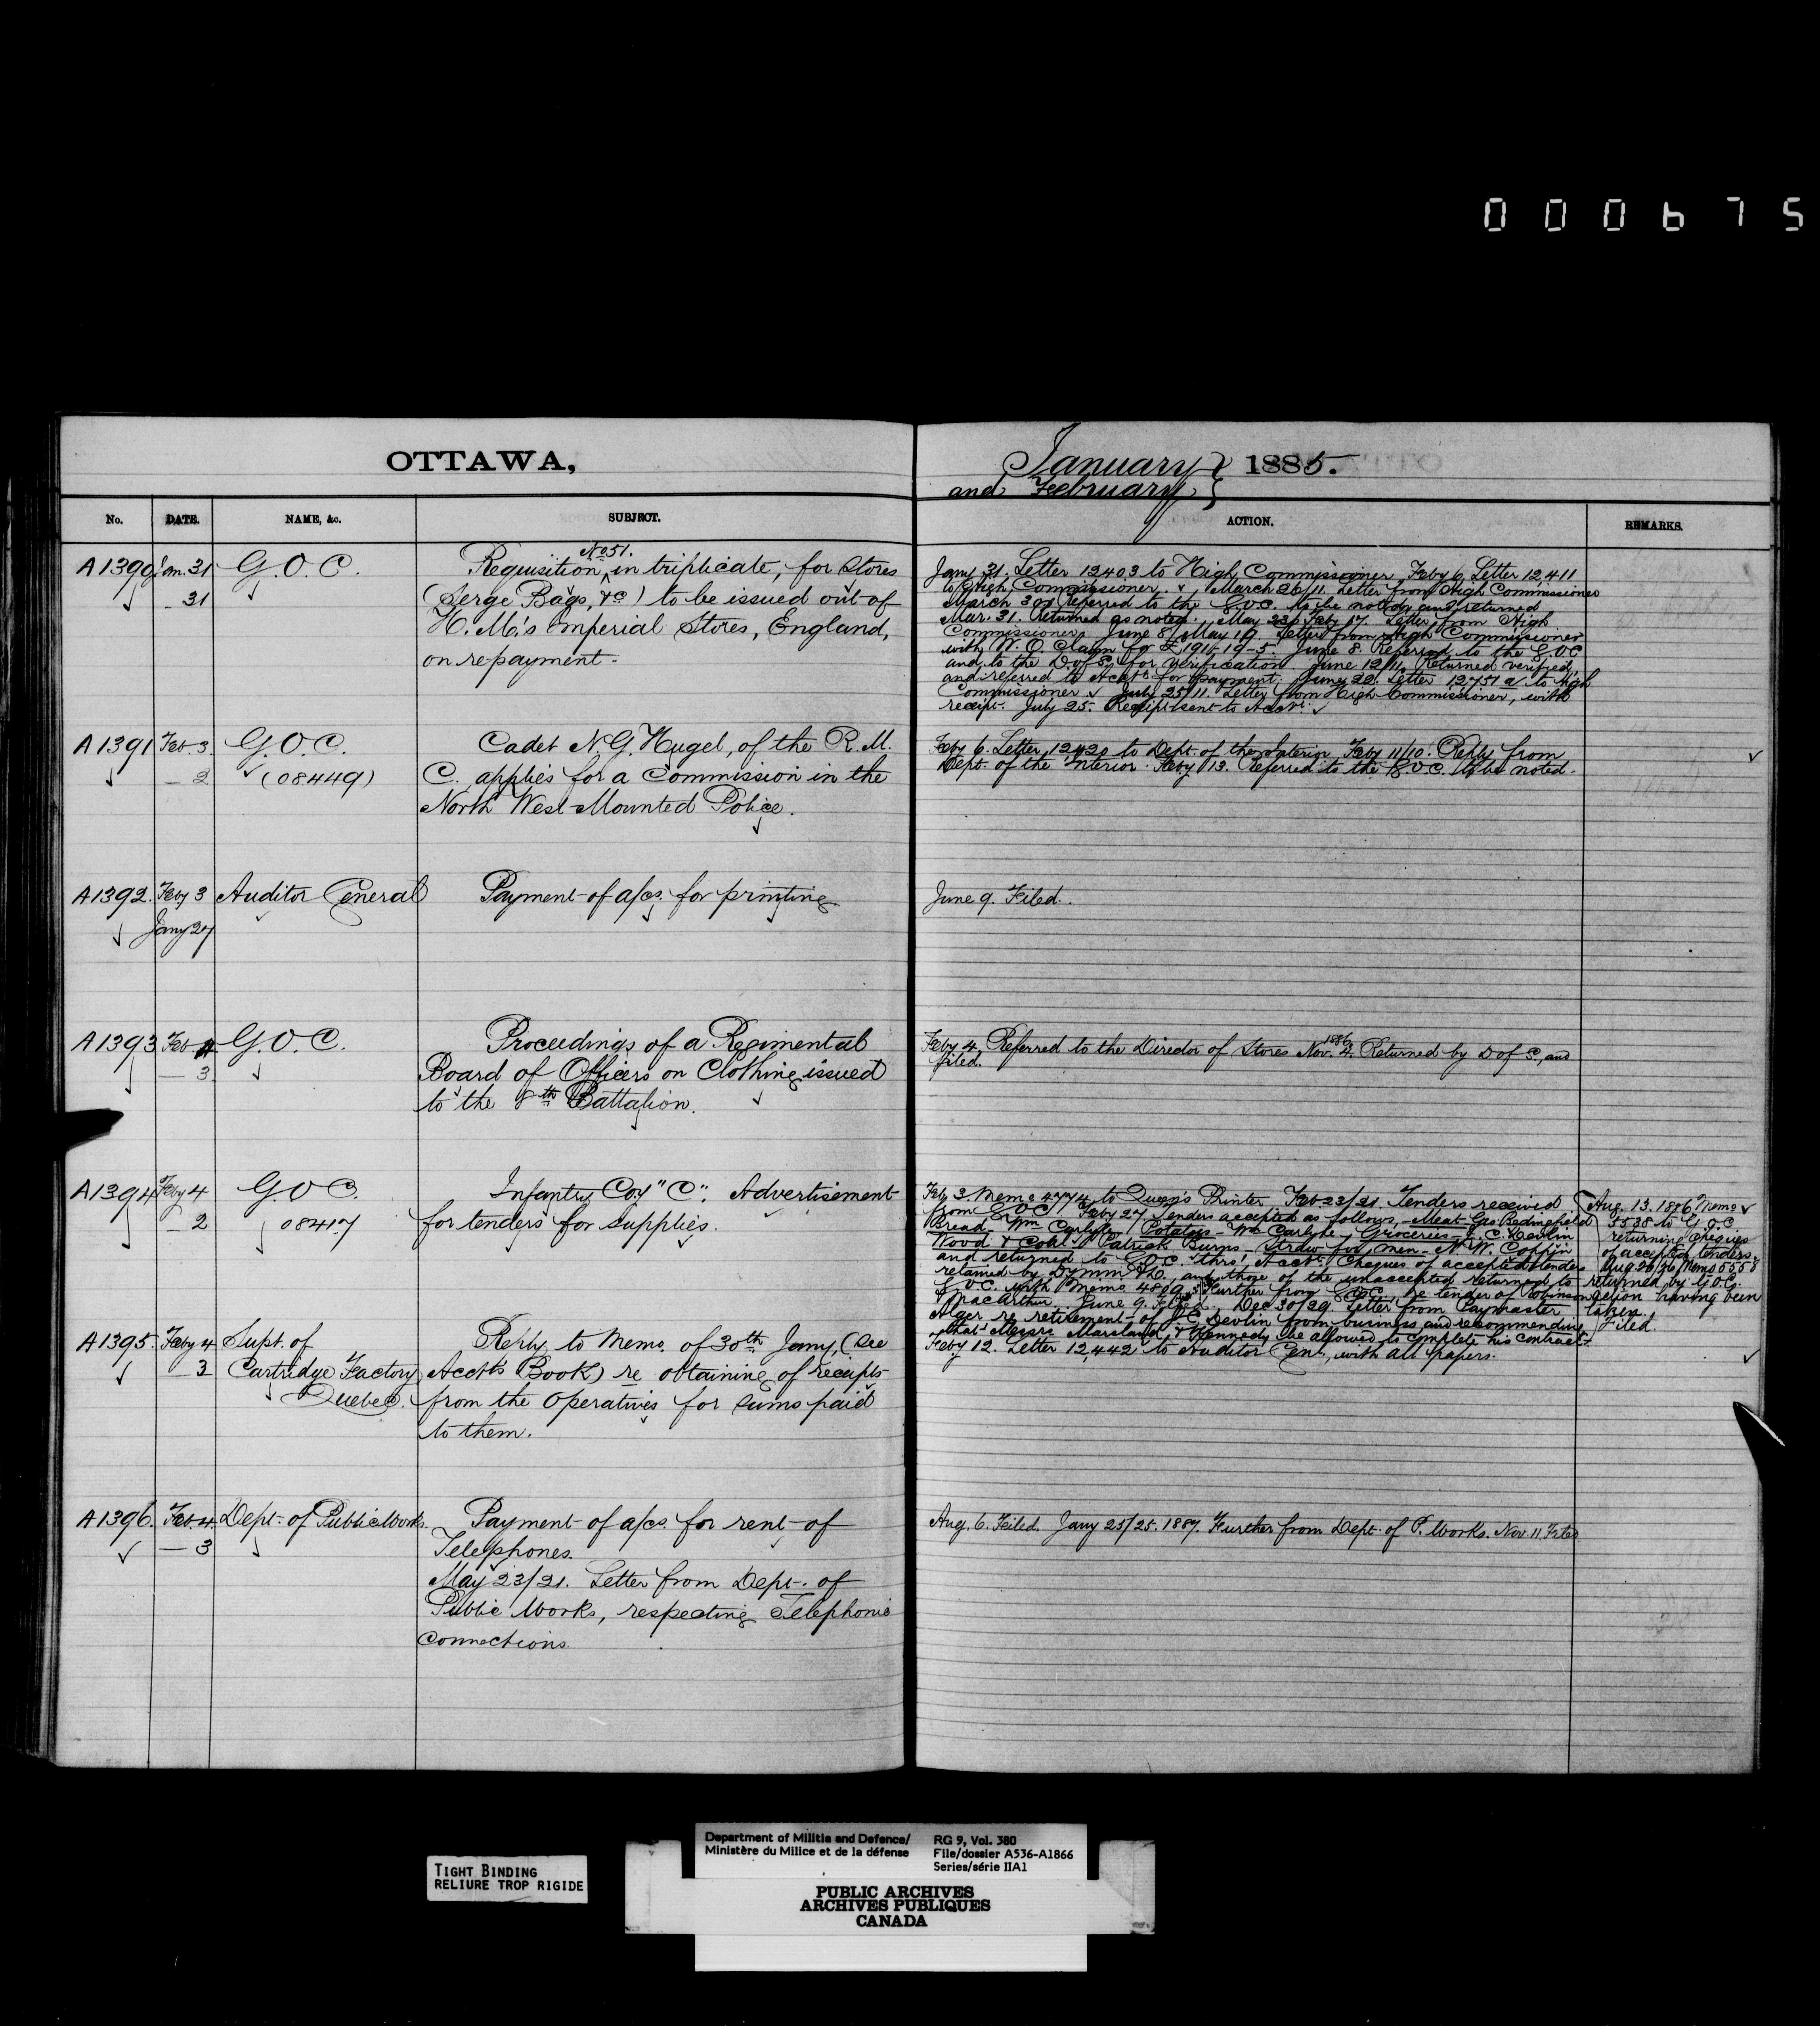 000675
OTTAWA,
January
and February
1885.
No.
DATE.
NAME, &c.
SUBJECT.
ACTION.
REMARKS.
A1390
Jan. 31
31
G.O.C.
Requisition No 51. in triplicate, for Stores
(Serge Bags, &c) to be issued out of
H.M.'s Imperial Stores, England,
on repayment.
Jany 31. Letter 12403 to High Commissioner. Feby 6 Letter 12,411
to High Commissioner. March 26/11. Letter from High Commissioner
March 30 Referred to the G.O.C. to be noted and returned
Mar. 31. Returned as noted. May 23/ Feby 17. Letter from High
Commissioner. June 8/May 19. Letter from High Commissioner
with W.O. Claim for £1916-19-5. June 8. Referred to the G.O.C
and to the D. of S. for verification June 12/11. Returned verified
and referred to Acct. for payment. June 22. Letter 12751 a to High
Commissioner July 25/11. Letter from High Commissioner, with
receipt. July 25. Receipt sent to Acct.
A1391
Feb. 3.
2
G.O.C.
(08449)
Cadet N.G. Hugel, of the R.M.
C. applies for a Commission in the
North West Mounted Police.
Feby 6. Letter 12420 to Dept. of the Interior. Feby 11/10. Reply from
Dept. of the Interior. Feby 13. Referred to the G.O.C. to be noted.
A1392.
Feby 3
Jany 27
Auditor General
Payment of a/cs. for printing
June 9. Filed.
A1393
Feb. 4
3.
G.O.C.
Proceedings of a Regimental
Board of Officers on Clothing issued
to the 8th Battalion.
Feby 4. Referred to the Director of Stores Nov. 4. 1886 Returned by D of S., and
filed.
A1394
Feby 4
2
G O C.
08417
Infantry Coy "C". Advertisement
for tenders for supplies.
Feb. 3. Memo 4774 to Queen's Printer Feb 23/21. Tenders received
from G.O.C. Feby 27. Tenders accepted as follows, Meat - Geo
Bread - Wm Carlyle Potatoes - Wm Carlyle, Groceries - J.C. Devlin
Wood & Coal Patrick Burns - Straw for men - N.W. Coppin
and returned to G.O.C. thro' Acct. Cheques of accepted tenders
retained by and those of the unaccepted returned to
G.O.C. with Memo Further from G.O.C. re tender of Robinson
& MacArthur June 9. Filed. Dec 30/29. Letter from Paymaster
Alger re retirement of J.C. Devlin from business, and recommending
that Messrs Marsland & Kennedy be allowed to complete his contract.
Aug. 13. 1886. Memo
5538 to G.O.C.
returning cheques
of accepted tenders.
Aug 26/26 Memo 5558
returned by G.O.C.
action having been
taken.
Filed.
A1395.
Feby 4
3
Supt. of
Cartridge Factory
Quebec.
Reply to Memo. of 30th Jany, (See
Acct's Book) re obtaining of receipts
from the Operatives for sums paid
to them.
Feby 12. Letter 12,442 to Auditor Genl., with all papers.
A1396.
Feb. 4.
3
Dept. of Public Works.
Payment of a/cs. for rent of
Telephones.
May 23/21. Letter from Dept. of
Public Works, respecting Telephonic
Connections.
Aug. 6. Filed. Jany 25/25. 1887. Further from Dept. of P. Works. Nov. 11 Filed
TIGHT BINDING
RELIURE TROP RIGIDE
Department of Militia and Defence/
Ministère du Milice et de la défense
RG 9, Vol. 380
File/dossier A536-A1866
Series/série IIA1
PUBLIC ARCHIVES
ARCHIVES PUBLIQUES
CANADA